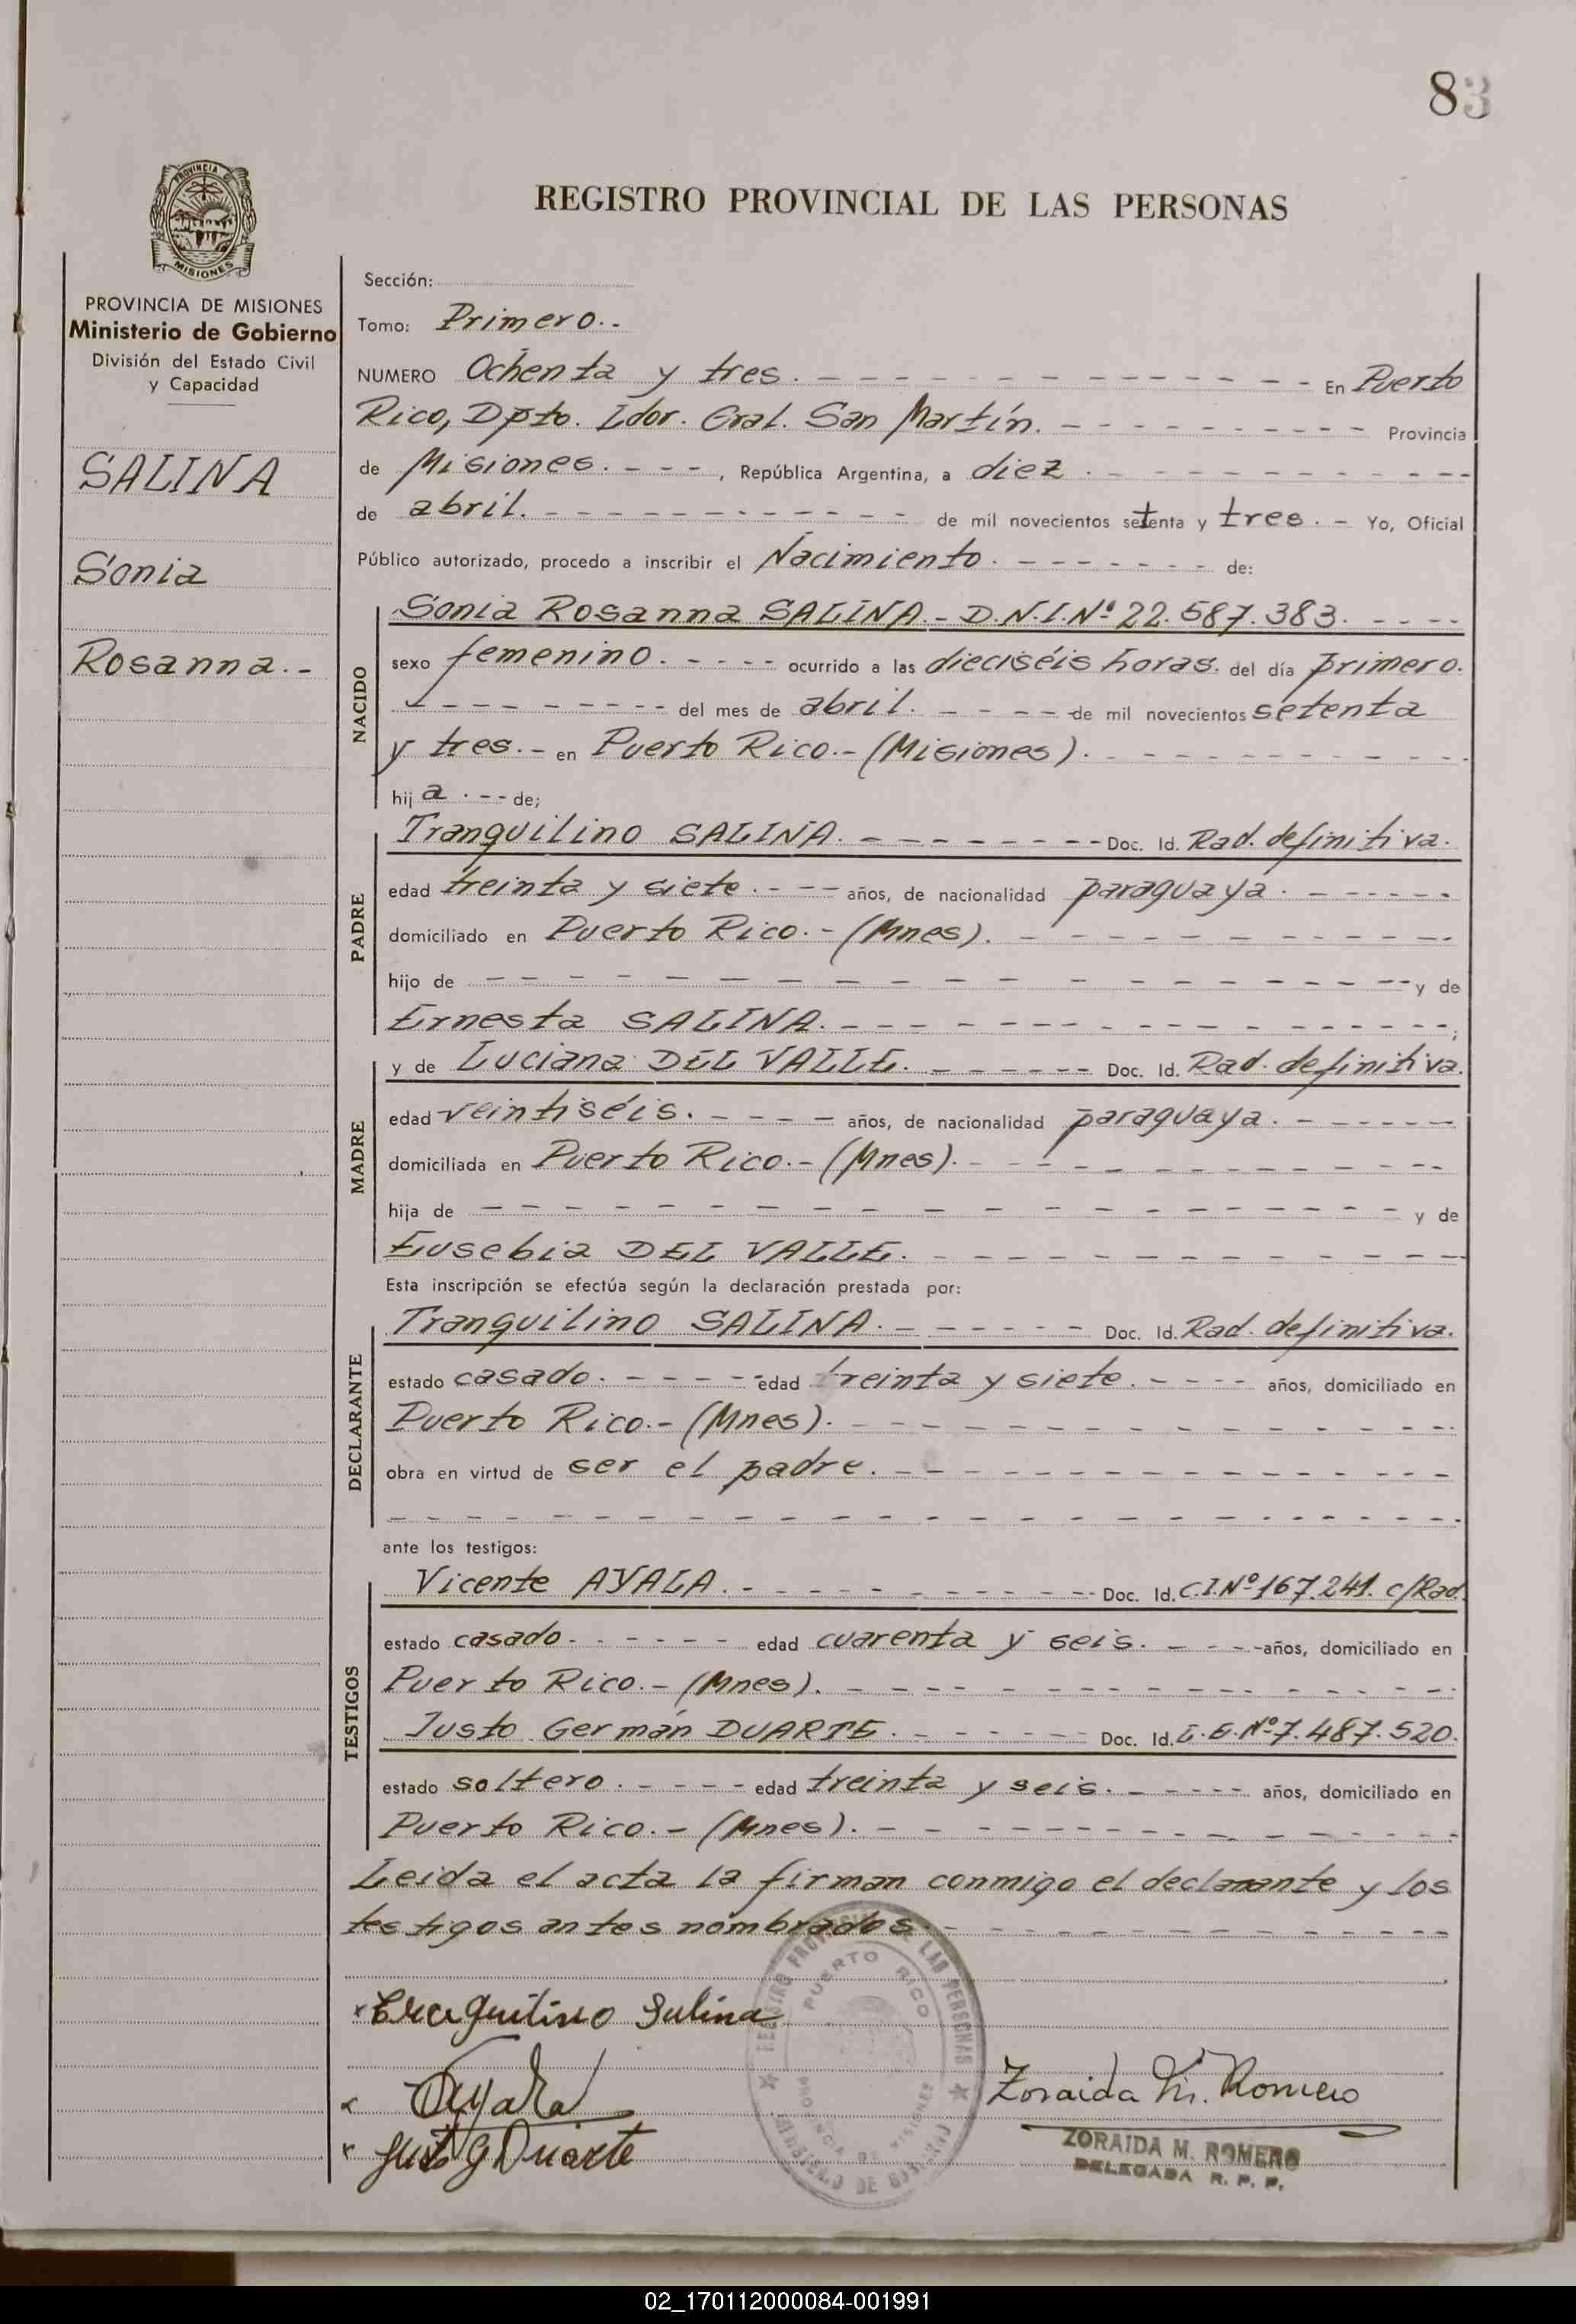 83
REGISTRO PROVINCIAL DE LAS PERSONAS
PROVINCIA DE MISIONES
PROVINCIA DE MISIONES
Ministerio de Gobierno
División del Estado Civil
y Capacidad
SALINA
Sonia
Rosanna.-
Sección:
Tomo: Primero.-
NUMERO Ochenta y tres. - - - En Puerto
Rico, Dpto. Ldor. Gral. San Martín. - - - Provincia
de Misiones. - - -, República Argentina, a diez. - - -
de abril. - - - de mil novecientos setenta y tres. - Yo, Oficial
Público autorizado, procedo a inscribir el Nacimiento. - - - de:
NACIDO
Sonia Rosanna SALINA.- D.N.I.Nº 22.587.383. - - -
sexo femenino. - - - ocurrido a las dieciséis horas. del día primero.
- - - del mes de abril. - - - de mil novecientos setenta
y tres. - en Puerto Rico.- (Misiones). - - -
hij a. - - de;
PADRE
Tranquilino SALINA. - - - Doc. Id. Rad. definitiva.
edad treinta y siete. - - - años, de nacionalidad paraguaya. - - -
domiciliado en Puerto Rico.- (Mnes). - - -
hijo de - - - y de
Ernesta SALINA. - - - ;
MADRE
y de Luciana DEL VALLE. - - - Doc. Id. Rad. definitiva.
edad veintiséis. - - - años, de nacionalidad paraguaya. - - -
domiciliada en Puerto Rico.- (Mnes). - - -
hija de - - - y de
Eusebia DEL VALLE. - - -
Esta inscripción se efectúa según la declaración prestada por:
DECLARANTE
Tranquilino SALINA. - - - Doc. Id. Rad. definitiva.
estado casado. - - - edad treinta y siete. - - - años, domiciliado en
Puerto Rico.- (Mnes). - - -
obra en virtud de ser el padre. - - -
- - -
ante los testigos:
TESTIGOS
Vicente AYALA. - - - Doc. Id. C.I.Nº 167.241. c/Rad.
estado casado. - - - edad cuarenta y seis. - - - años, domiciliado en
Puerto Rico.- (Mnes). - - -
Justo Germán DUARTE. - - - Doc. Id. L.E.Nº 7.487.520.
estado soltero. - - - edad treinta y seis. - - - años, domiciliado en
Puerto Rico.- (Mnes). - - -
Leida el acta la firman conmigo el declarante y los
testigos antes nombrados. - - -
REGISTRO PROVINCIAL DE LAS PERSONAS
PUERTO RICO
PROVINCIA DE MISIONES
MINISTERIO DE GOBIERNO
Tranquilino Salina
Ayala
Justo G Duarte
Zoraida M. Romero
ZORAIDA M. ROMERO
DELEGADA R. P. P.
02_170112000084-001991